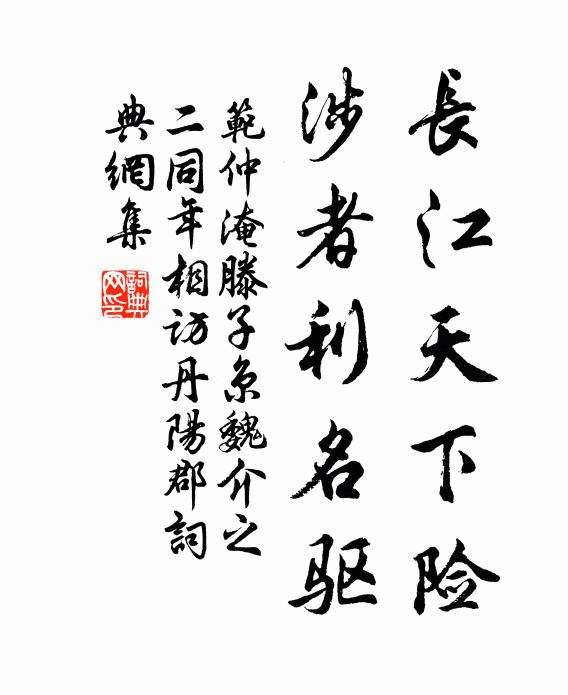 長江天下险
涉者利名驱
範仲淹滕子京魏介之
二同年相访丹陽郡詞
典網集
詞典网印